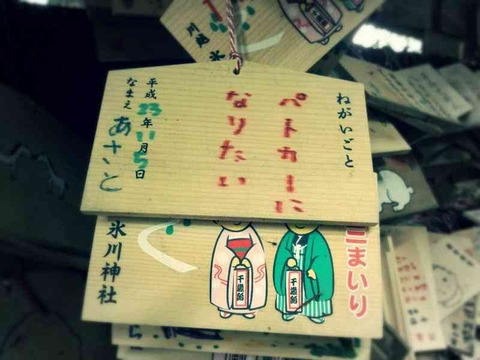 ねがいごと
パトカーに
なりたい
平成23年11月5日
なまえ あさと
三まいり
千歳飴
千歳飴
氷川神社
川越